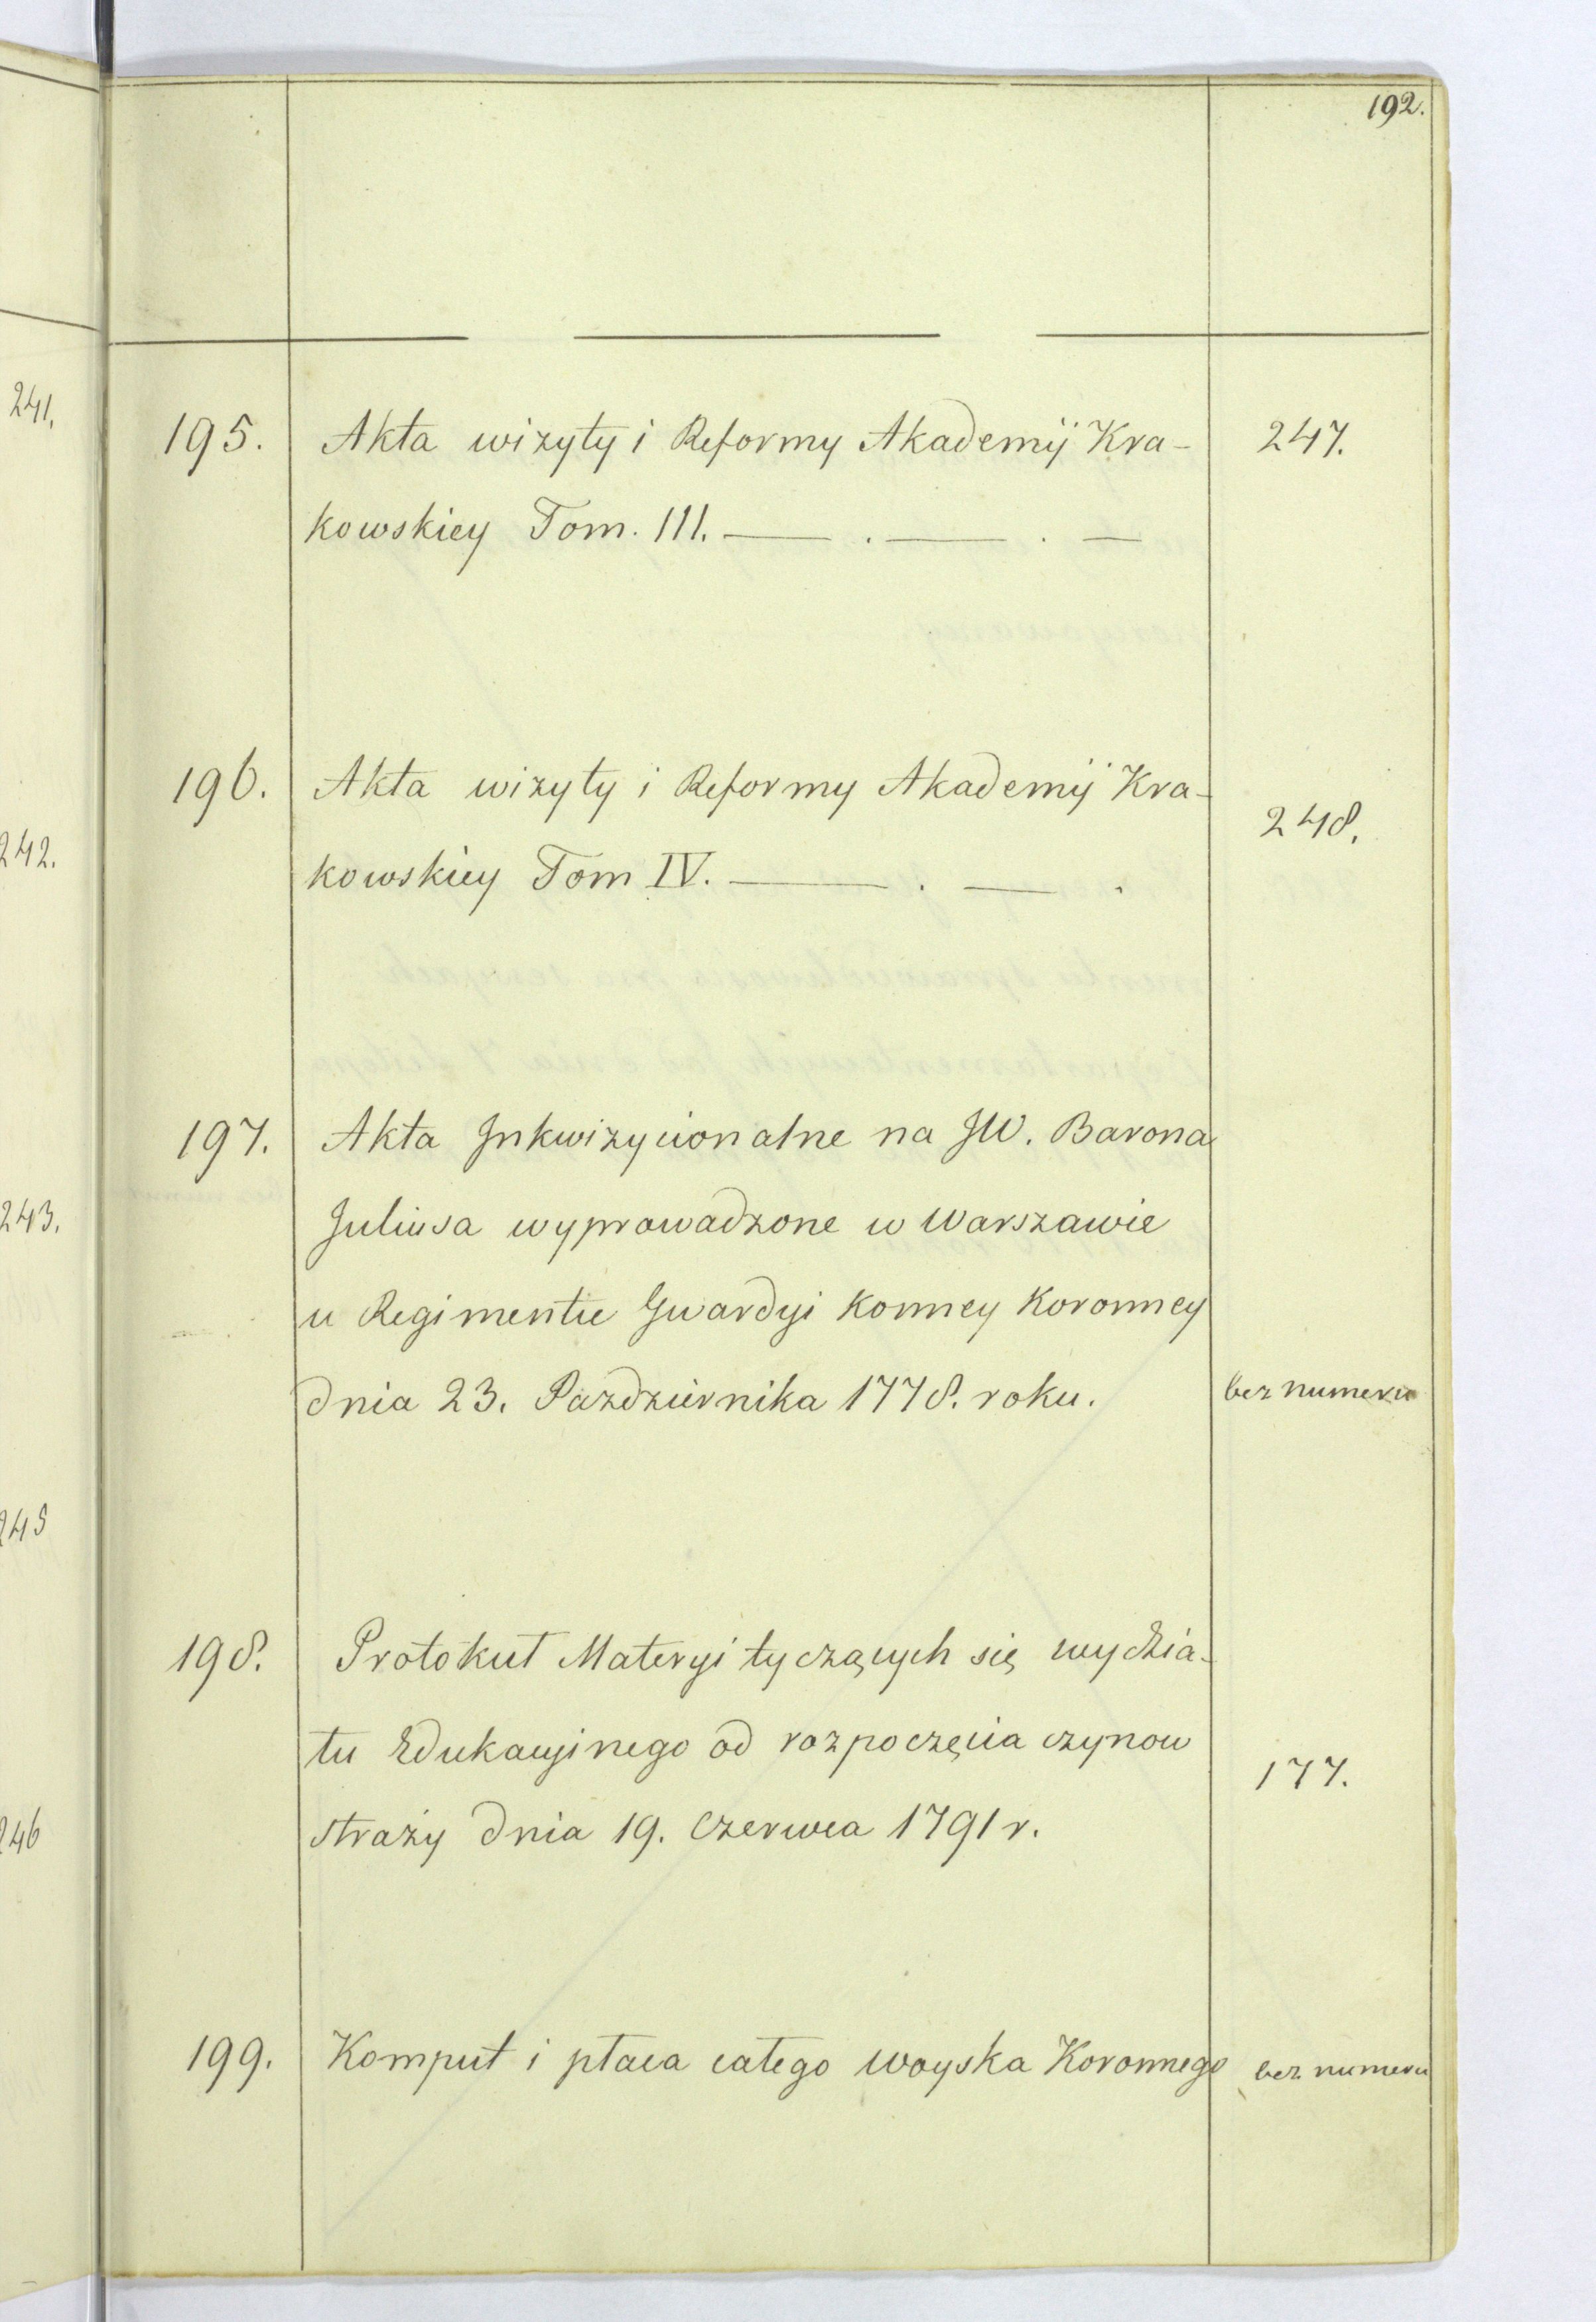 192.
241.
242.
243.
245
246
195. Akta wizyty i Reformy Akademij Kra- 247.
kowskiey Tom. III. — . — . —
196. Akta wizyty i Reformy Akademij Kra- 248.
kowskiey Tom IV. — . — .
197. Akta Inkwizycionalne na JW. Barona
Juliusa wyprowadzone w Warszawie
u Regimentu Gwardyi Konney Koronney
dnia 23. Pazdziernika 1778. roku. bez numeru
198. Protokuł Materyi tyczących się wydzia-
łu Edukacyinego od rozpoczęcia czynow 177.
straży dnia 19. Czerwca 1791 r.
199. Komput i płaca całego woyska Koronnego bez numeru